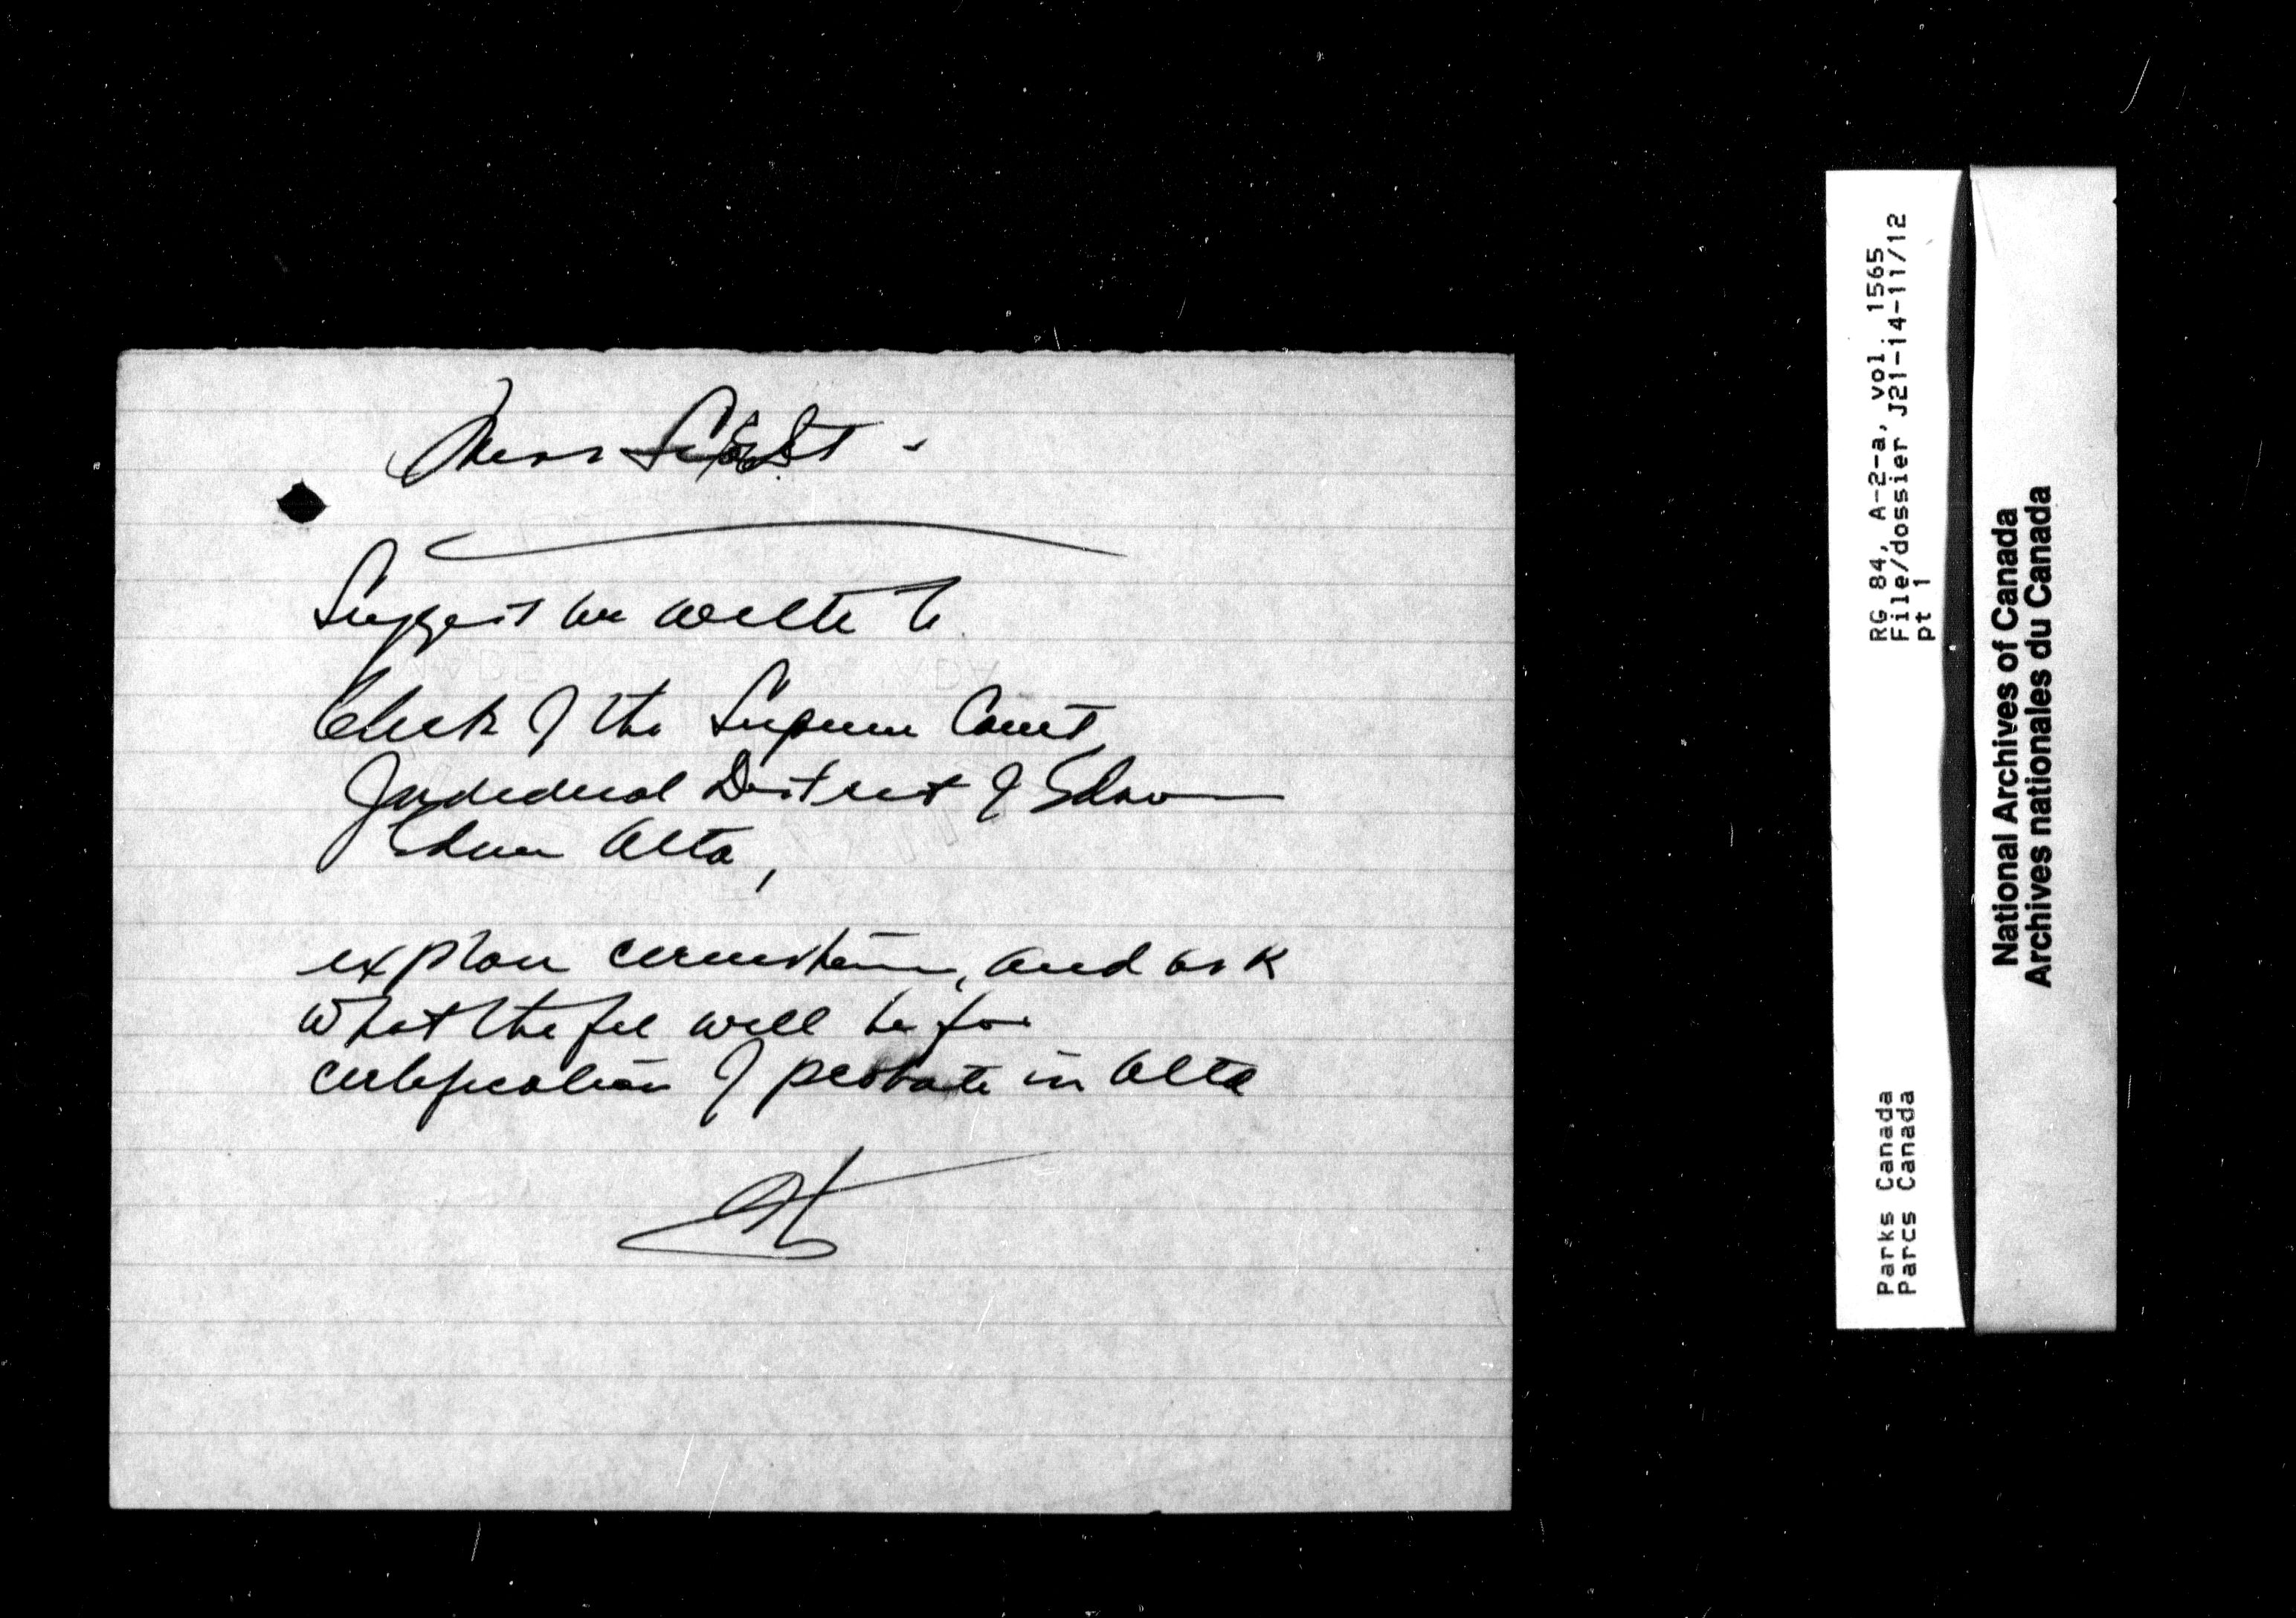 Miss Scott -
Suggest we write to
Clerk of the Supreme Court,
Judicial District of Edson
Edson Alta,
explain circumstances, and ask
what the fee will be for
certification of probate in Alta
RG 84, A-2-a, vol. 1565,
File/dossier J21-14-11/12
pt 1
Parks Canada
Parcs Canada
National Archives of Canada
Archives nationales du Canada